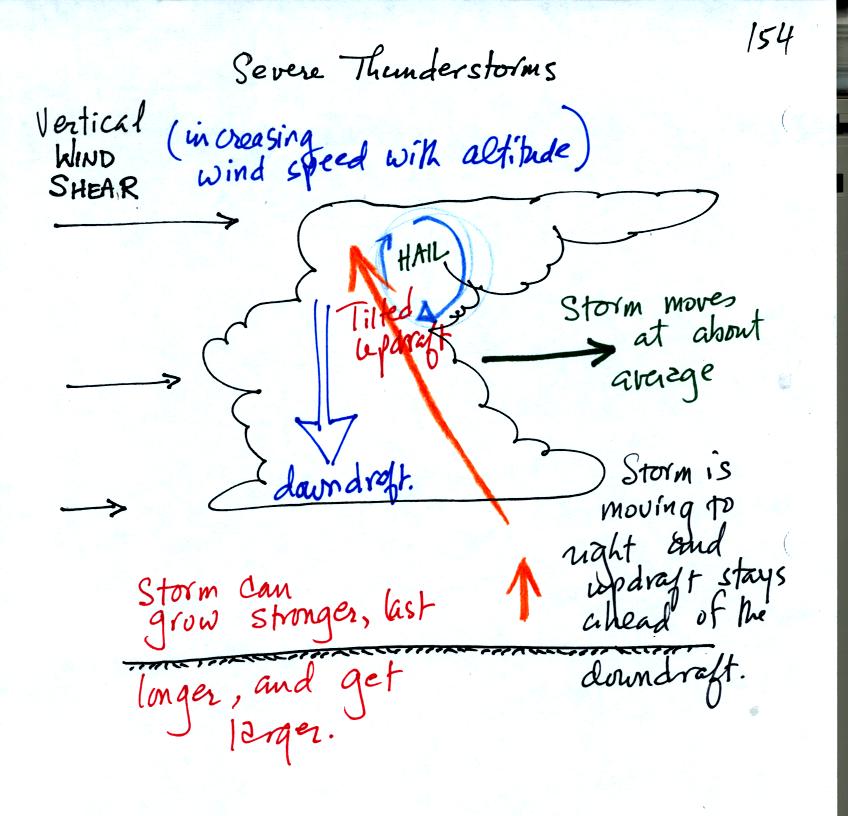 154
Severe Thunderstorms
Vertical
WIND
SHEAR
(increasing
wind speed with altitude)
HAIL
Tilted
updraft
Storm moves
at about
average
downdraft.
Storm is
moving to
right and
updraft stays
ahead of the
downdraft.
Storm can
grow stronger, last
longer, and get
larger.